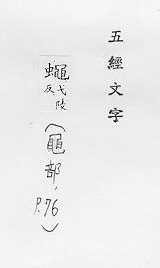 五經文字
蠅弋陵反
(黽部, P.76)